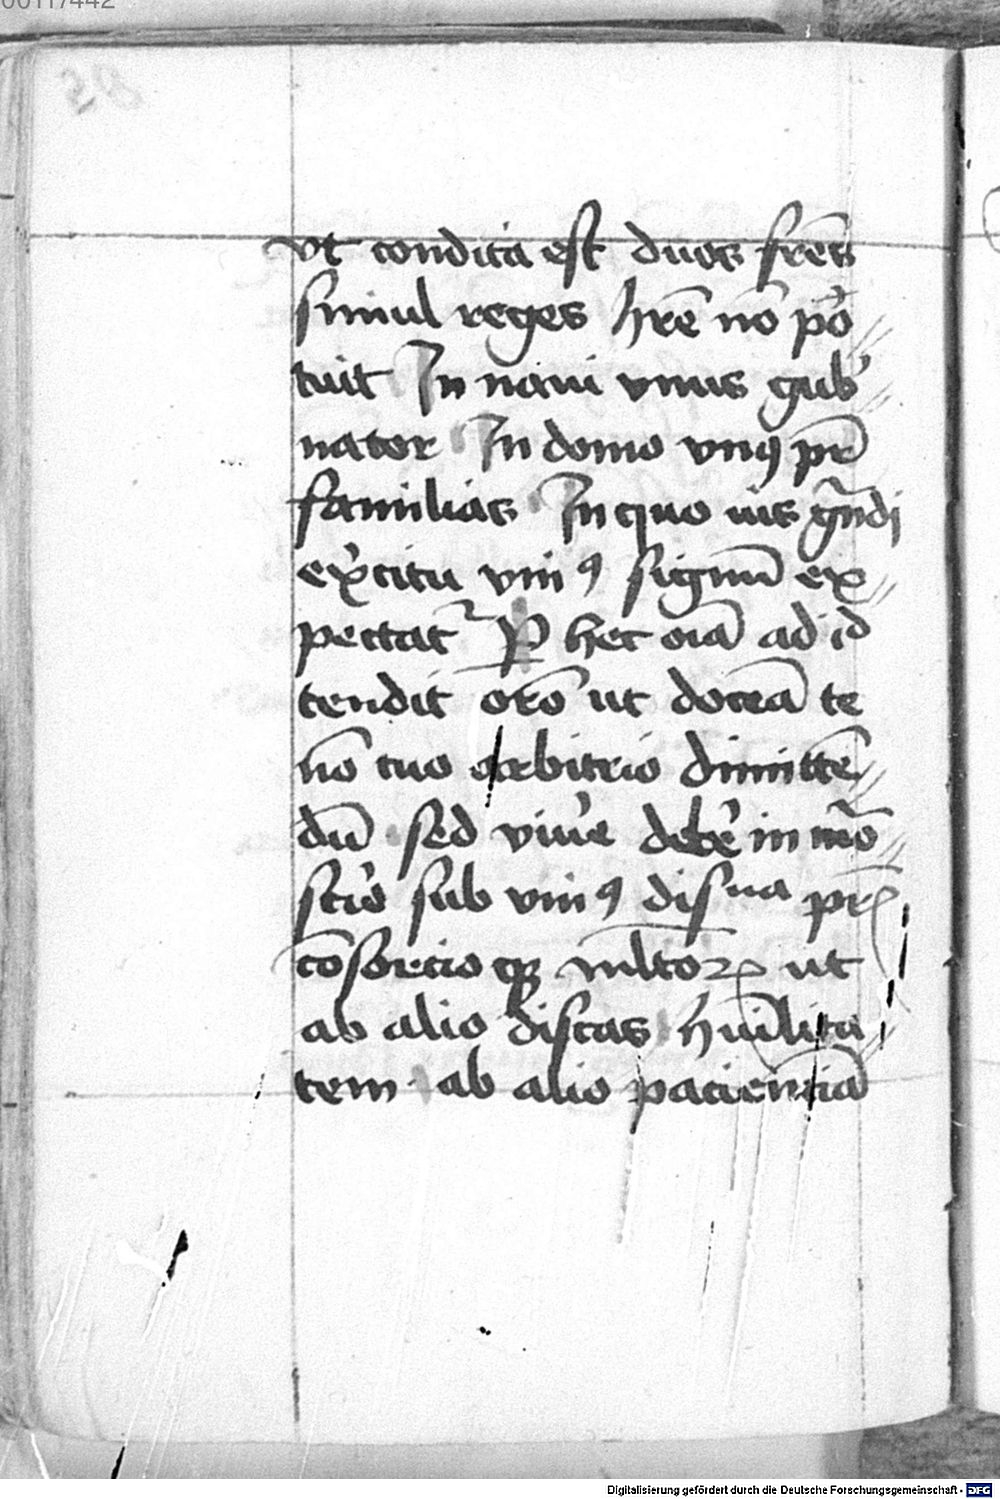 00117442
vt condita est duos frēs
simul reges hr̄e nō po
tuit In naui vnus gub'
nator In domo vnꝯ pr̄
familias In quo uis grādi
ex'citu vniꝯ signū ex
pectat᷑ P hec oīa ad id
tendit or̄o ut doceā te
nō tuo arbitrio dimittē
dū sed viu'e deb'e in mō
st'io sub vniꝯ disᶜⁱᵖˡⁱⁿᵃ pr̄is
cōsorcio qꝫ multoꝝ ut
ab alio discas humīlita
tem ab alio pacienciā
Digitalisierung gefördert durch die Deutsche Forschungsgemeinschaft - DFG